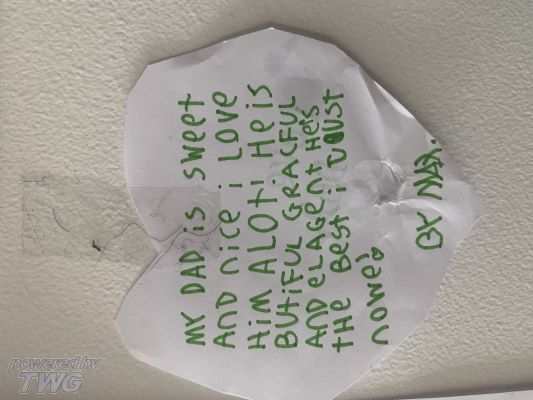 MY DAD iS SWEET
AND niCE i LOVE
HiM ALOT! HE iS
BUTiFUL GRACFUL
AND ELAGENT HE'S
THE BEST i JUST
nOWE!
BY
powered by
TWG